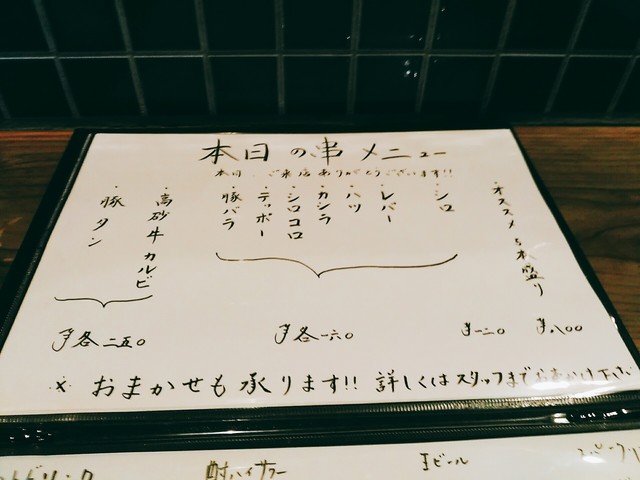 本日の串メニュー
本日 ご来店ありがとうございます!!
・オススメ 5本盛り
・シロ
・レバー
・ハツ
・カシラ
・シロコロ
・テッポー
・豚バラ
・高砂牛カルビ
・豚タン
¥八〇〇
¥一二〇
¥各一六〇
¥各二五〇
※ おまかせも承ります!! 詳しくはスタッフまで 下さい
酎ハイサワー
生ビール